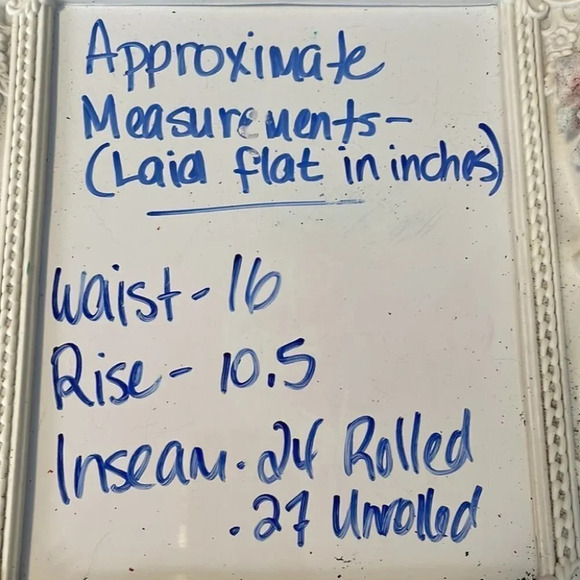 Approximate
Measurements-
(Laid flat in inches)
Waist-16
Rise-10.5
Inseam.24 Rolled
.27 Unrolled